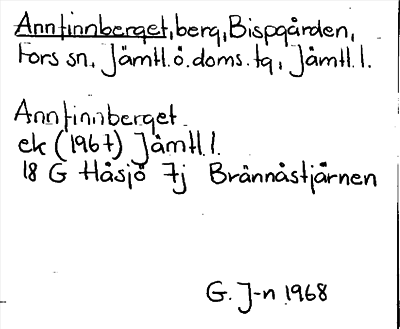 Annfinnberget, berg, Bispgården,
Fors sn, Jämtl.ö.doms.tg, Jämtl.l.
Annfinnberget
ek (1967) Jämtl.l.
18 G Håsjö 7j Brännåstjärnen
G. J-n 1968